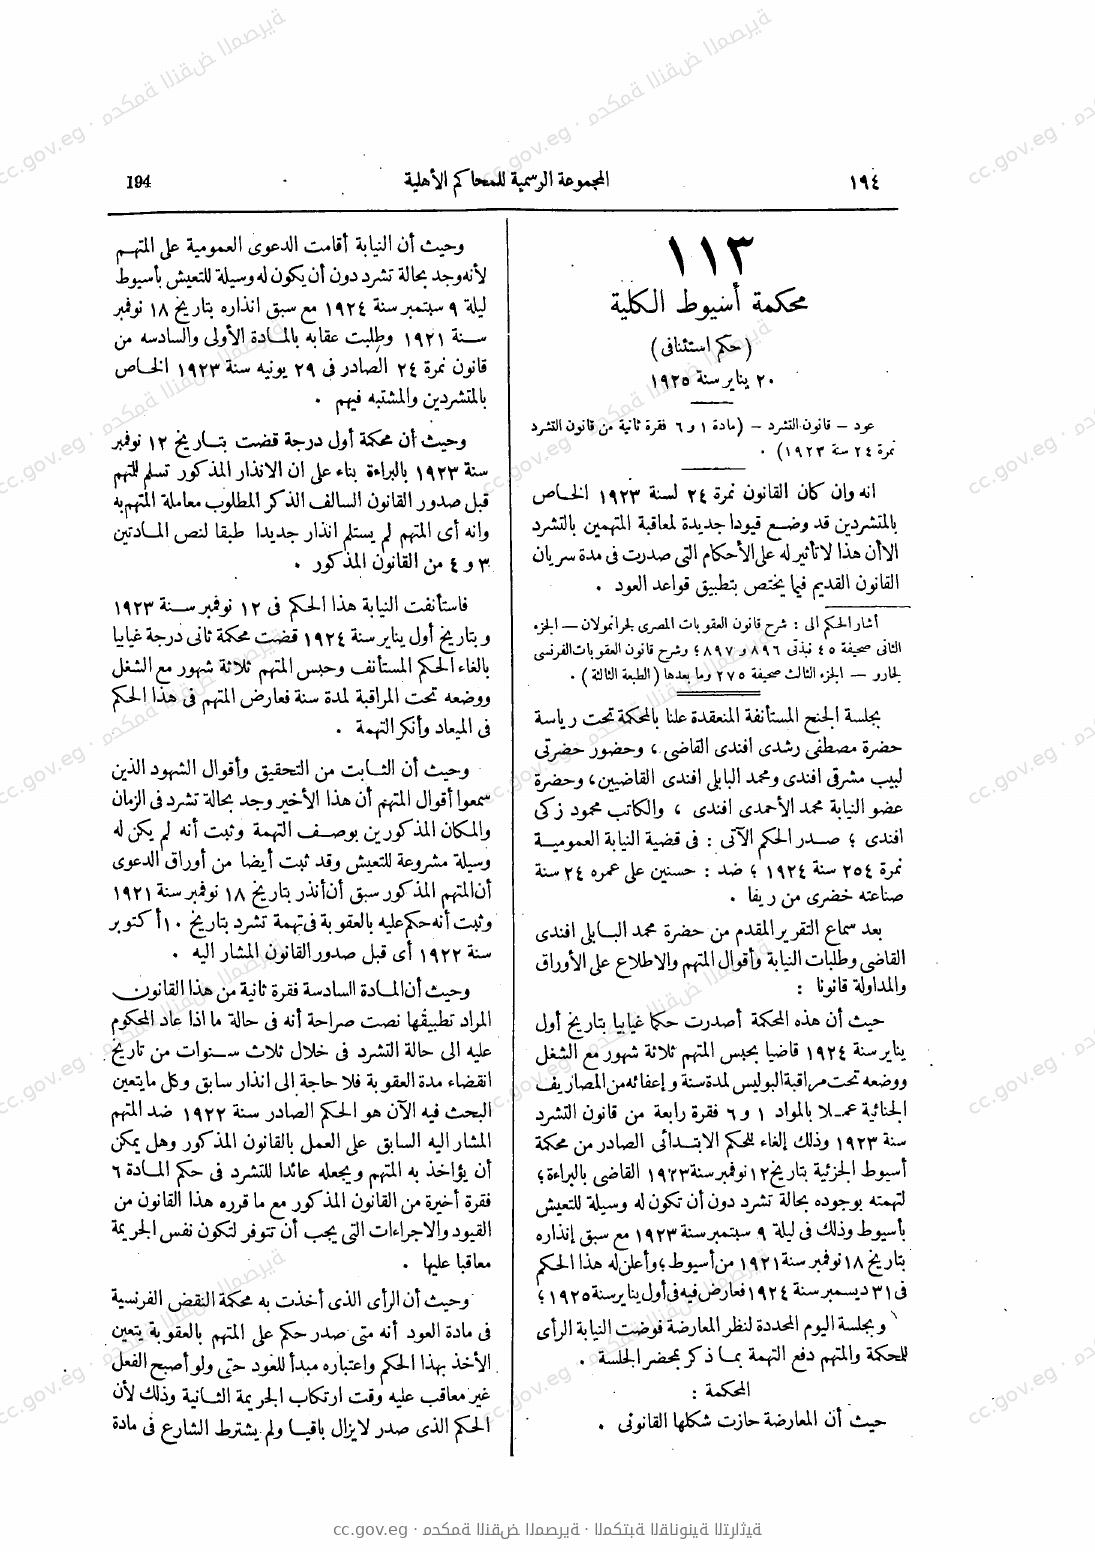 ١٩٤
المجموعة الرسمية للمحاكم الأهلية
194
١١٣
محكمة أسيوط الكلية
(حكم استئنافى)
٢٠ يناير سنة ١٩٢٥
عود – قانون التشرد – (مادة ١ و ٦ فقرة ثانية من قانون التشرد
نمرة ٢٤ سنة ١٩٢٣) .
انه وان كان القانون نمرة ٢٤ لسنة ١٩٢٣ الخاص
بالمتشردين قد وضع قيودا جديدة لمعاقبة المتهمين بالتشرد
الا أن هذا لا تأثير له على الأحكام التى صدرت فى مدة سريان
القانون القديم فيما يختص بتطبيق قواعد العود .
أشار الحكم الى : شرح قانون العقوبات المصرى لجرانمولان – الجزء
الثانى صحيفة ٤٥ نبذتى ٨٩٦ و ٨٩٧ ؛ وشرح قانون العقوبات الفرنسى
لجارو – الجزء الثالث صحيفة ٢٧٥ وما بعدها (الطبعة الثالثة) .
بجلسة الجنح المستأنفة المنعقدة علنا بالمحكمة تحت رياسة
حضرة مصطفى رشدى افندى القاضى ، وحضور حضرتى
لبيب مشرقى افندى ومحمد البابلى افندى القاضيين ، وحضرة
عضو النيابة محمد الأحمدى افندى ، والكاتب محمود زكى
افندى ؛ صدر الحكم الآتى : فى قضية النيابة العمومية
نمرة ٢٥٤ سنة ١٩٢٤ ؛ ضد : حسنين على عمره ٢٤ سنة
صناعته خضرى من ريفا .
بعد سماع التقرير المقدم من حضرة محمد البابلى افندى
القاضى وطلبات النيابة وأقوال المتهم والاطلاع على الأوراق
والمداولة قانونا :
حيث أن هذه المحكمة أصدرت حكما غيابيا بتاريخ أول
يناير سنة ١٩٢٤ قاضيا بحبس المتهم ثلاثة شهور مع الشغل
ووضعه تحت مراقبة البوليس لمدة سنة وإعفائه من المصاريف
الجنائية عملا بالمواد ١ و ٦ فقرة رابعة من قانون التشرد
سنة ١٩٢٣ وذلك إلغاء للحكم الابتدائى الصادر من محكمة
أسيوط الجزئية بتاريخ ١٢ نوفمبر سنة ١٩٢٣ القاضى بالبراءة ؛
لتهمته بوجوده بحالة تشرد دون أن تكون له وسيلة للتعيش
بأسيوط وذلك فى ليلة ٩ سبتمبر سنة ١٩٢٣ مع سبق إنذاره
بتاريخ ١٨ نوفمبر سنة ١٩٢١ من أسيوط ؛ وأعلن له هذا الحكم
فى ٣١ ديسمبر سنة ١٩٢٤ فعارض فيه فى أول يناير سنة ١٩٢٥ ؛
وبجلسة اليوم المحددة لنظر المعارضة فوضت النيابة الرأى
للمحكمة والمتهم دفع التهمة بما ذكر بمحضر الجلسة .
المحكمة :
حيث أن المعارضة حازت شكلها القانونى .
وحيث أن النيابة أقامت الدعوى العمومية على المتهم
لأنه وجد بحالة تشرد دون أن يكون له وسيلة للتعيش بأسيوط
ليلة ٩ سبتمبر سنة ١٩٢٤ مع سبق انذاره بتاريخ ١٨ نوفمبر
سنة ١٩٢١ وطلبت عقابه بالمادة الأولى والسادسه من
قانون نمرة ٢٤ الصادر فى ٢٩ يونيه سنة ١٩٢٣ الخاص
بالمتشردين والمشتبه فيهم .
وحيث أن محكمة أول درجة قضت بتاريخ ١٢ نوفمبر
سنة ١٩٢٣ بالبراءة بناء على ان الانذار المذكور تسلم للمتهم
قبل صدور القانون السالف الذكر المطلوب معاملة المتهم به
وانه أى المتهم لم يستلم انذار جديدا طبقا لنص المادتين
٣ و ٤ من القانون المذكور .
فاستأنفت النيابة هذا الحكم فى ١٢ نوفمبر سنة ١٩٢٣
وبتاريخ أول يناير سنة ١٩٢٤ قضت محكمة ثانى درجة غيابيا
بالغاء الحكم المستأنف وحبس المتهم ثلاثة شهور مع الشغل
ووضعه تحت المراقبة لمدة سنة فعارض المتهم فى هذا الحكم
فى الميعاد وأنكر التهمة .
وحيث أن الثابت من التحقيق وأقوال الشهود الذين
سمعوا أقوال المتهم أن هذا الأخير وجد بحالة تشرد فى الزمان
والمكان المذكورين بوصف التهمة وثبت أنه لم يكن له
وسيلة مشروعة للتعيش وقد ثبت أيضا من أوراق الدعوى
أن المتهم المذكور سبق أن أنذر بتاريخ ١٨ نوفمبر سنة ١٩٢١
وثبت أنه حكم عليه بالعقوبة فى تهمة تشرد بتاريخ ١٠ أكتوبر
سنة ١٩٢٢ أى قبل صدور القانون المشار اليه .
وحيث أن المادة السادسة فقرة ثانية من هذا القانون
المراد تطبيقها نصت صراحة أنه فى حالة ما اذا عاد المحكوم
عليه الى حالة التشرد فى خلال ثلاث سنوات من تاريخ
انقضاء مدة العقوبة فلا حاجة الى انذار سابق وكل ما يتعين
البحث فيه الآن هو الحكم الصادر سنة ١٩٢٢ ضد المتهم
المشار اليه السابق على العمل بالقانون المذكور وهل يمكن
أن يؤاخذ به المتهم ويجعله عائدا للتشرد فى حكم المادة ٦
فقرة أخيرة من القانون المذكور مع ما قرره هذا القانون من
القيود والاجراءات التى يجب أن تتوفر لتكون نفس الجريمة
معاقبا عليها .
وحيث أن الرأى الذى أخذت به محكمة النقض الفرنسية
فى مادة العود أنه متى صدر حكم على المتهم بالعقوبة يتعين
الأخذ بهذا الحكم واعتباره مبدأ للعود حتى ولو أصبح الفعل
غير معاقب عليه وقت ارتكاب الجريمة الثانية وذلك لأن
الحكم الذى صدر لا يزال باقيا ولم يشترط الشارع فى مادة
cc.gov.eg · محكمة النقض المصرية · المكتبة القانونية التراثية